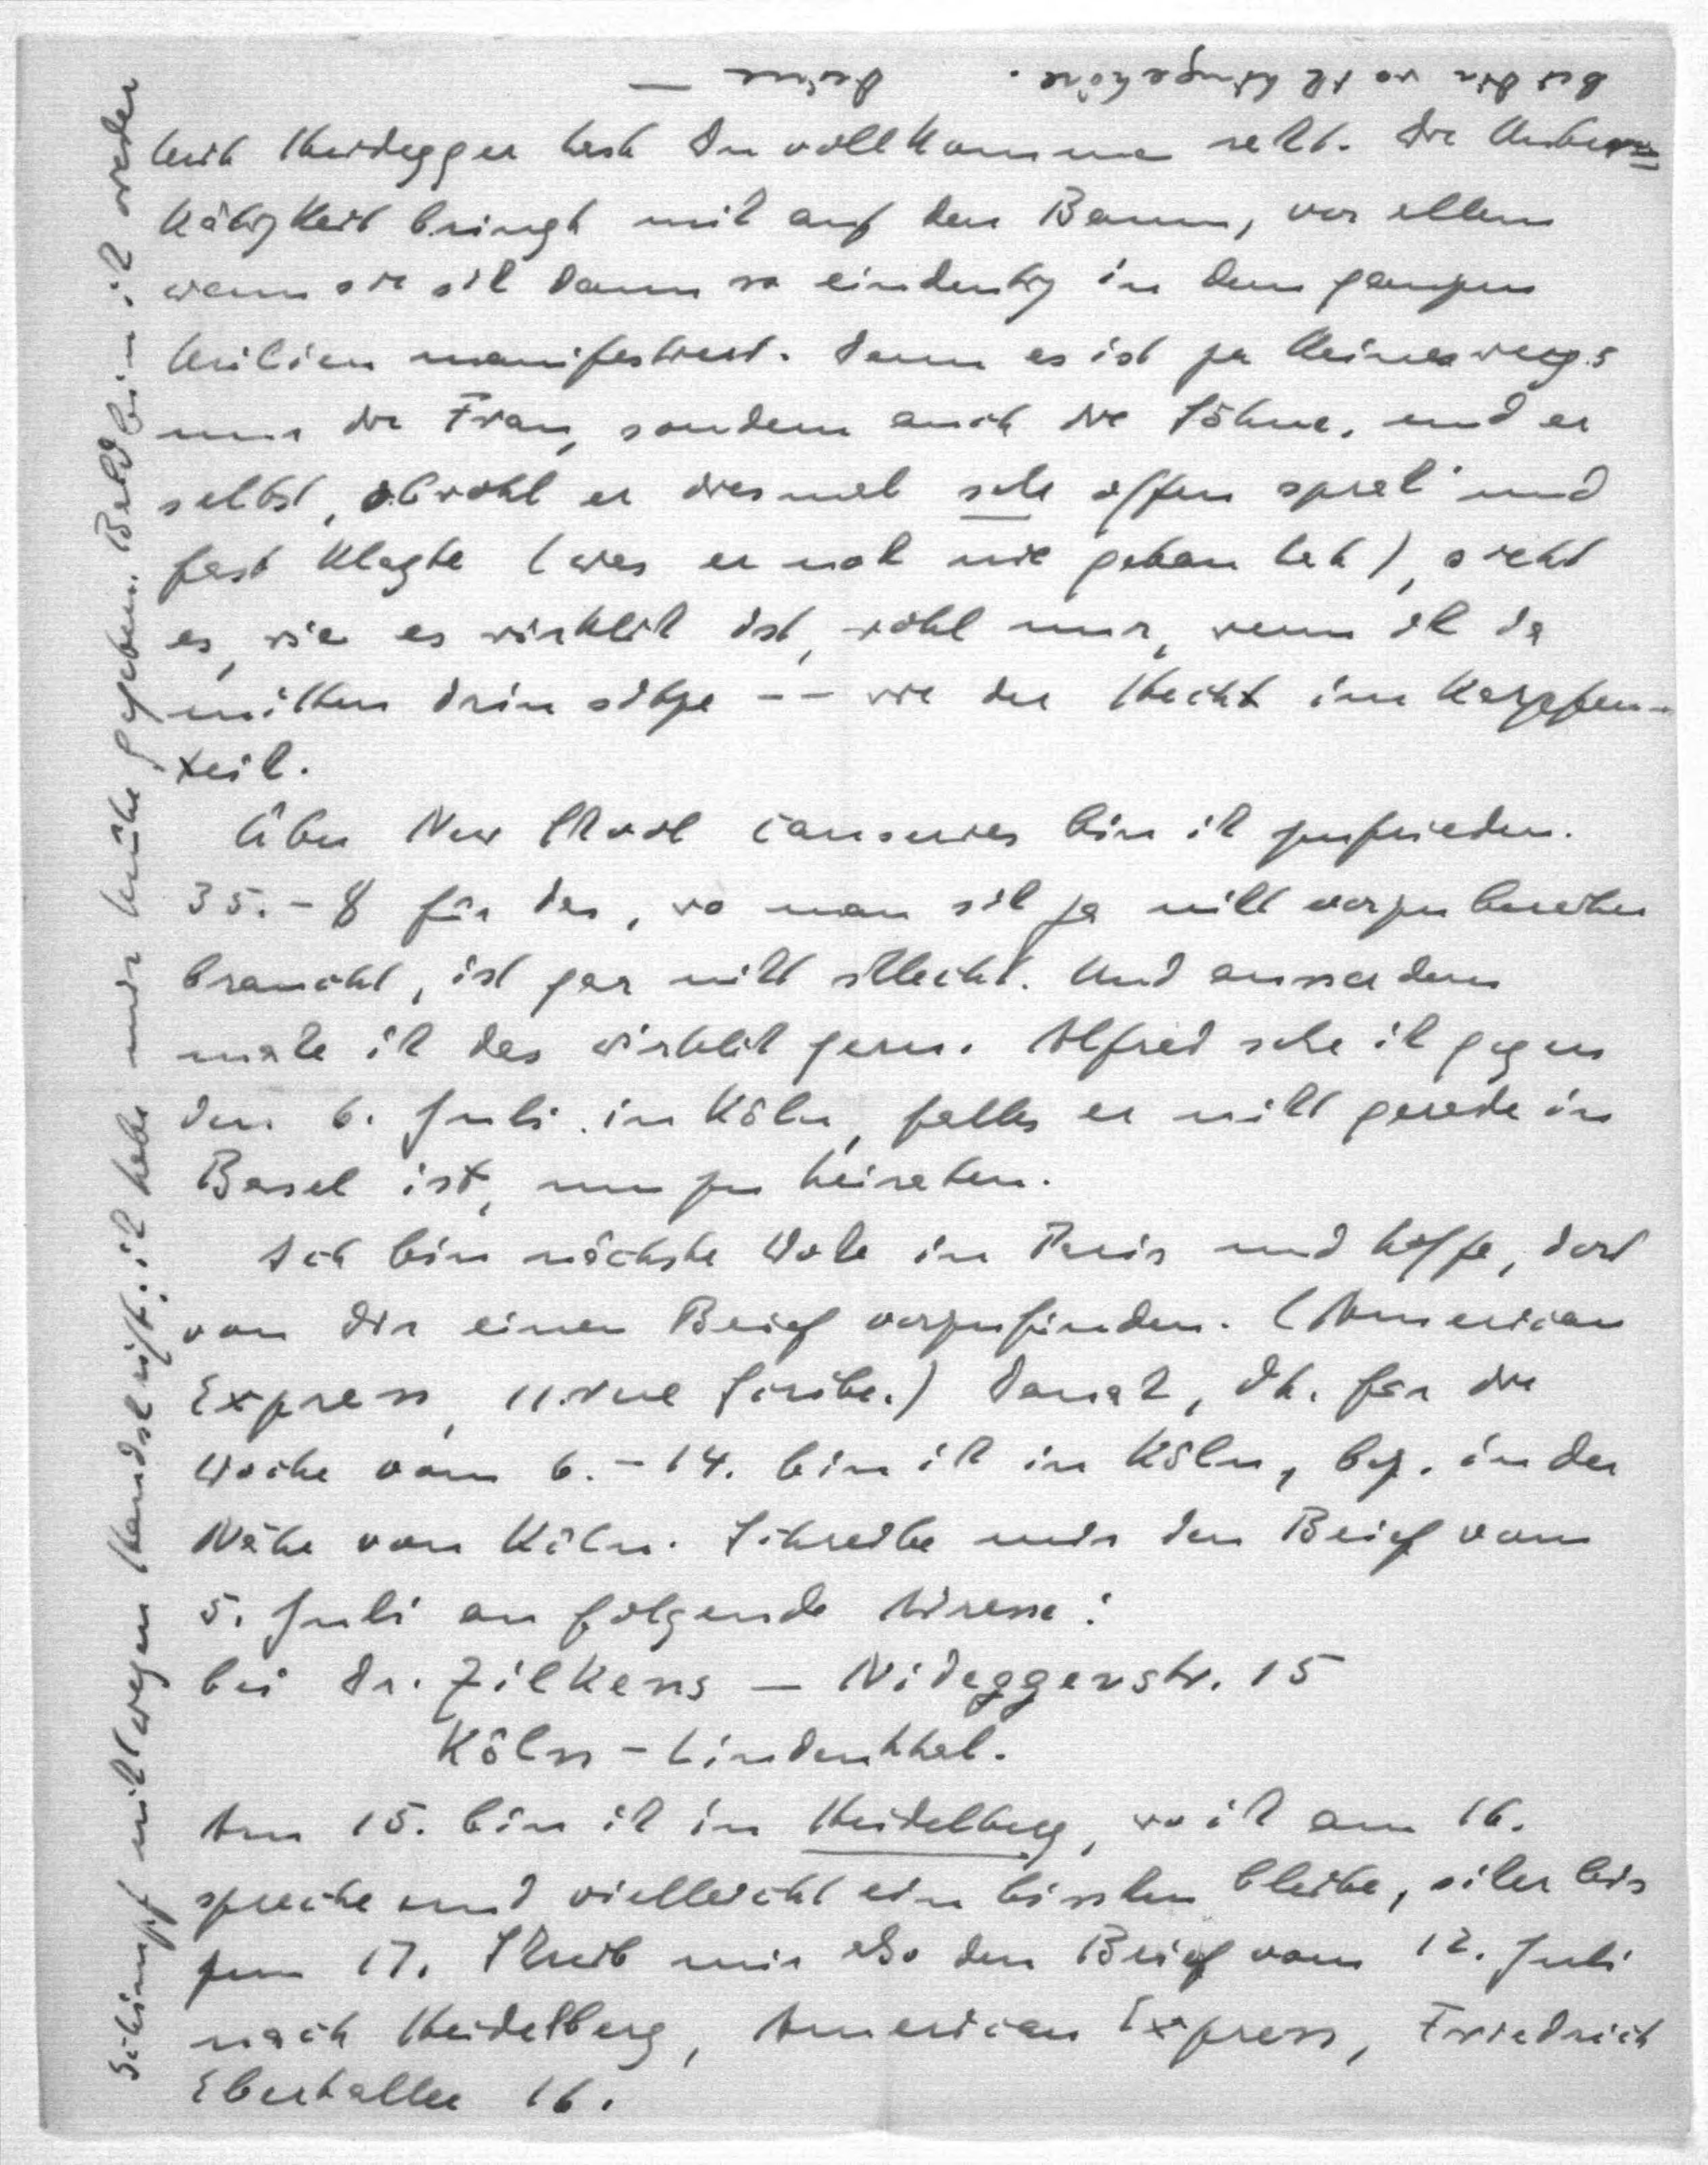 Mit Heidegger hast Du vollkommen recht. Die Unbe-
tätigkeit bringt mich auf den Baum, vor allem
wenn sie sich dann so eindeutig in dem ganzen
Milieu manifestiert. Denn es ist ja keineswegs
nur die Frau, sondern auch die Söhne. und er
selbst, obwohl er diesmal sehr offen sprach und
fast klagte (was er noch nie getan hat), sieht
es, wie es wirklich ist, wohl nur, wenn ich da
mitten drin sitze -- wie der Hecht im Karpfen-
teich.
Über New School causeries bin ich zufrieden.
35.- $ für das, wo man sich ja nicht vorzubereiten
braucht, ist gar nicht schlecht. Und ausserdem
mache ich das wirklich gern. Alfred sehe ich gegen
den 6. Juli in Köln, falls er nicht gerade in
Basel ist, um zu heiraten.
Ich bin nächste Woche in Paris und hoffe, dort
von Dir einen Brief vorzufinden. (American
Express, 11. rue Scribe.) Danach, dh. für die
Woche vom 6. - 14. bin ich in Köln, bz. in der
Nähe von Köln. Schreibe mir den Brief vom
5. Juli an folgende Adresse:
bei Dr. Zilkens — Nideggerstr. 15
Köln - Lindenthal.
Am 15. bin ich in Heidelberg, wo ich am 16.
spreche und vielleicht ein bisschen bleibe, sicher bis
zum 17. Schreib mir also den Brief vom 12. Juli
nach Heidelberg, American Express, Friedrich
Ebertallee 16.
Schimpf nicht wegen Handschrift: ich habe mir Mühe gegeben. Bald bin ich wieder
bei Dir wo ich hingehöre. Deine —